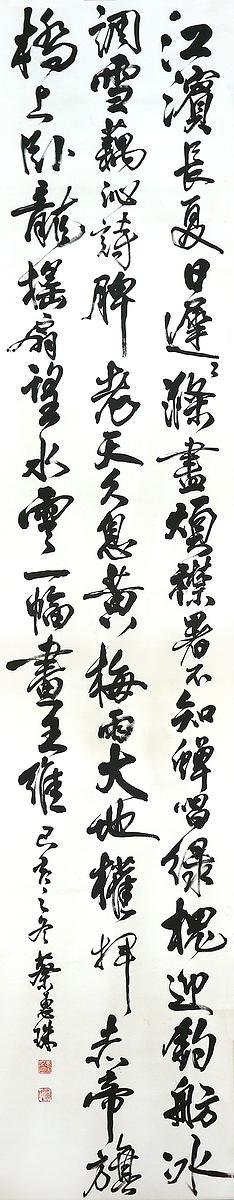 江濱長夏日遲々滌盡煩襟暑不知蟬唱綠槐迎釣舫冰
調雪藕沁詩脾老天久息黃梅雨大地權揮赤帝旗
橋上臥龍搖扇望水雲一幅畫王維 己亥之冬 蔡惠珠